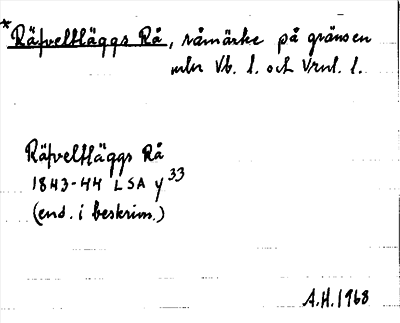 *Räfvelfläggs Rå, råmärke på gränsen
mln Vb. l. och Vrml. l.
Räfvelfläggs Rå
1843-44 LSA y33
(end. i beskrivn.)
A.H. 1968